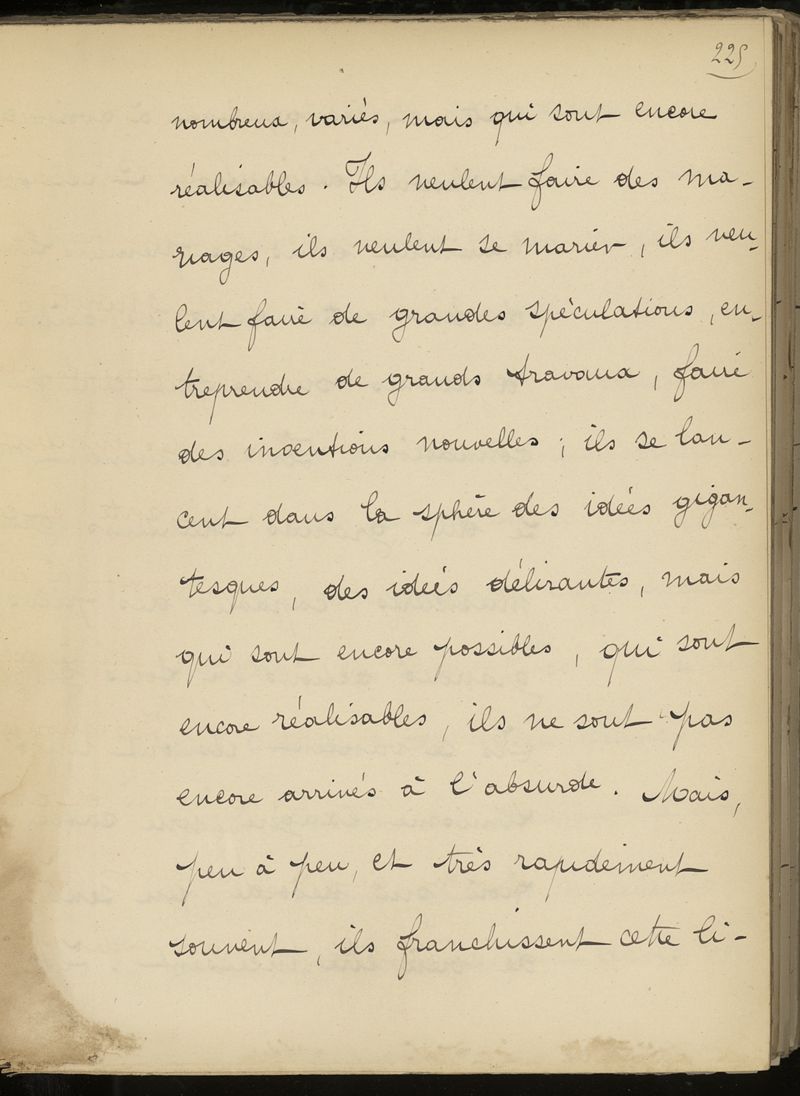 225
nombreux, variés, mais qui sont encore
réalisables. Ils veulent faire des ma-
riages, ils veulent se marier, ils veu-
lent faire de grandes spéculations, en-
treprendre de grands travaux, faire
des inventions nouvelles ; ils se lan-
cent dans la sphère des idées gigan-
tesques, des idées délirantes, mais
qui sont encore possibles, qui sont
encore réalisables, ils ne sont pas
encore arrivés à l'absurde. Mais,
peu à peu, et très rapidement
souvent, ils franchissent cette li-